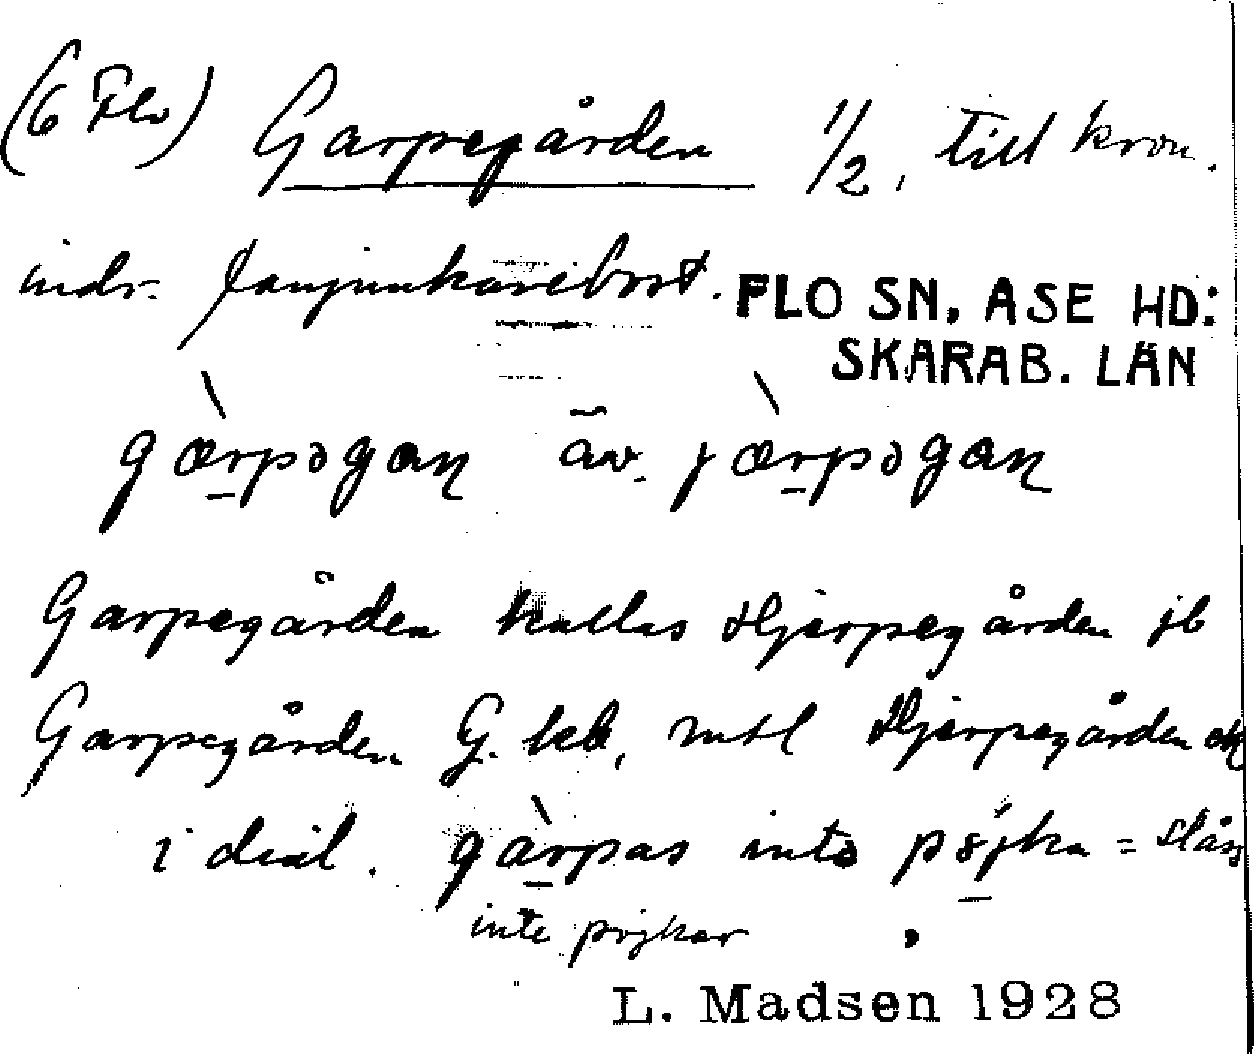 (6 Flo) Garpegården 1/2, till kron.
indr. fanjunkarebost. FLO SN. ASE HD:
SKARAB. LÄN
gàrpəgan äv. jàrpəgan
Garpegården kallas Hjerpegården jb
Garpegården G. kb, mtl Hjerpegården
i dial. gàrpas intə pöjka = slåss
inte pojkar
L. Madsen 1928